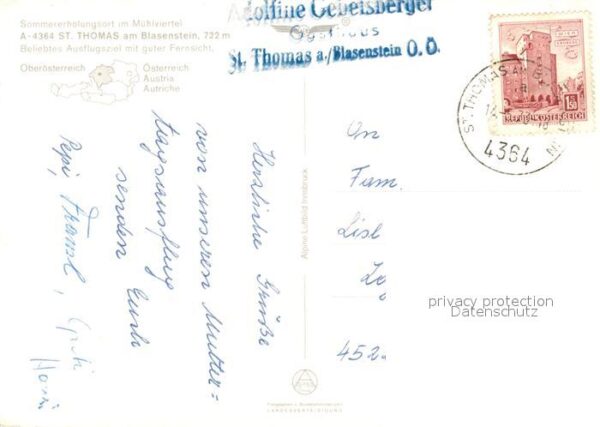 Sommererholungsort im Mühlviertel
A-4364 ST. THOMAS am Blasenstein, 722 m
Beliebtes Ausflugsziel mit guter Fernsicht.
Oberösterreich
Österreich
Austria
Autriche
Adolfine Gebetsberger
Gasthaus
St. Thomas a./Blasenstein O. Ö.
1.50
REPUBLIK ÖSTERREICH
ST. THOMAS AM
4364
Herzliche Grüße
von unseren Mutter=
tagsausflug
senden Euch
Pepi, Franzl,
Alpine Luftbild Innsbruck
An
Fam.
Lisl
452
privacy protection
Datenschutz
LANDESVERTEIDIGUNG